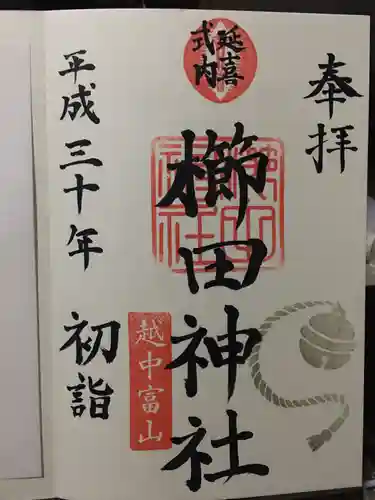 奉拝
延喜
式内
櫛田神社
越中富山
平成三十年
初詣